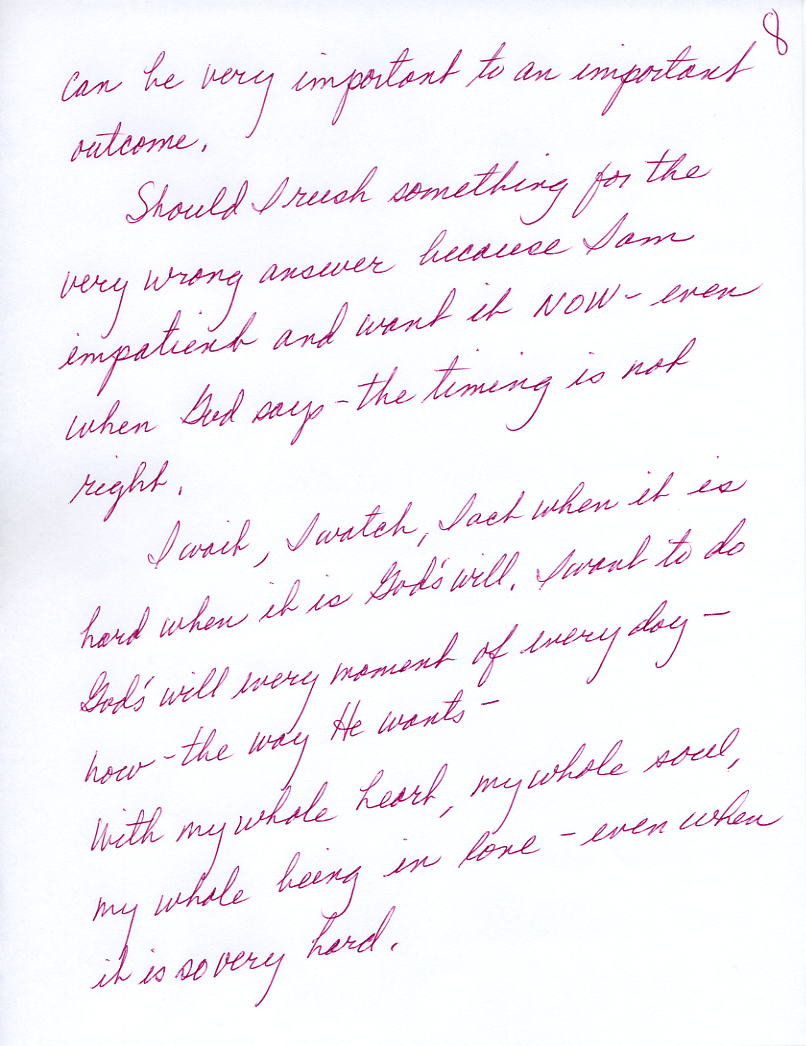 8
can be very important to an important
outcome.
Should I rush something for the
very wrong answer because I am
impatient and want it NOW - even
when God says - the timing is not
right.
I wait, I watch, I act when it is
hard when it is God's will. I want to do
God's will every moment of every day -
how - the way He wants -
With my whole heart, my whole soul,
my whole being in love - even when
it is so very hard.